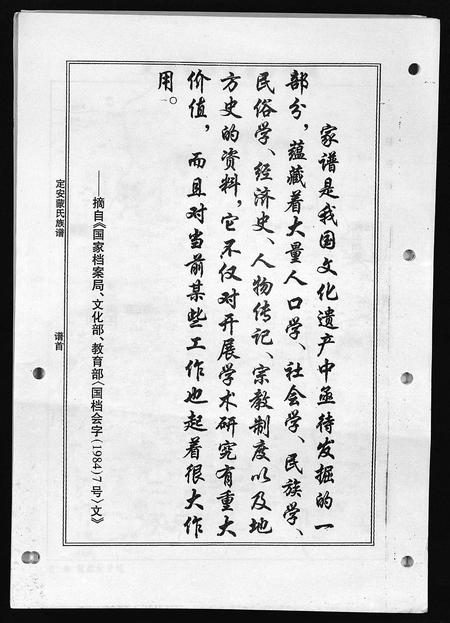 家谱是我国文化遗产中亟待发掘的一
部分，蕴藏着大量人口学、社会学、民族学、
民俗学、经济史、人物传记、宗教制度以及地
方史的资料，它不仅对开展学术研究有重大
价值，而且对当前某些工作也起着很大作
用。
——摘自《国家档案局、文化部、教育部〈国档会字(1984)7号〉文》
定安蒙氏族谱
谱首